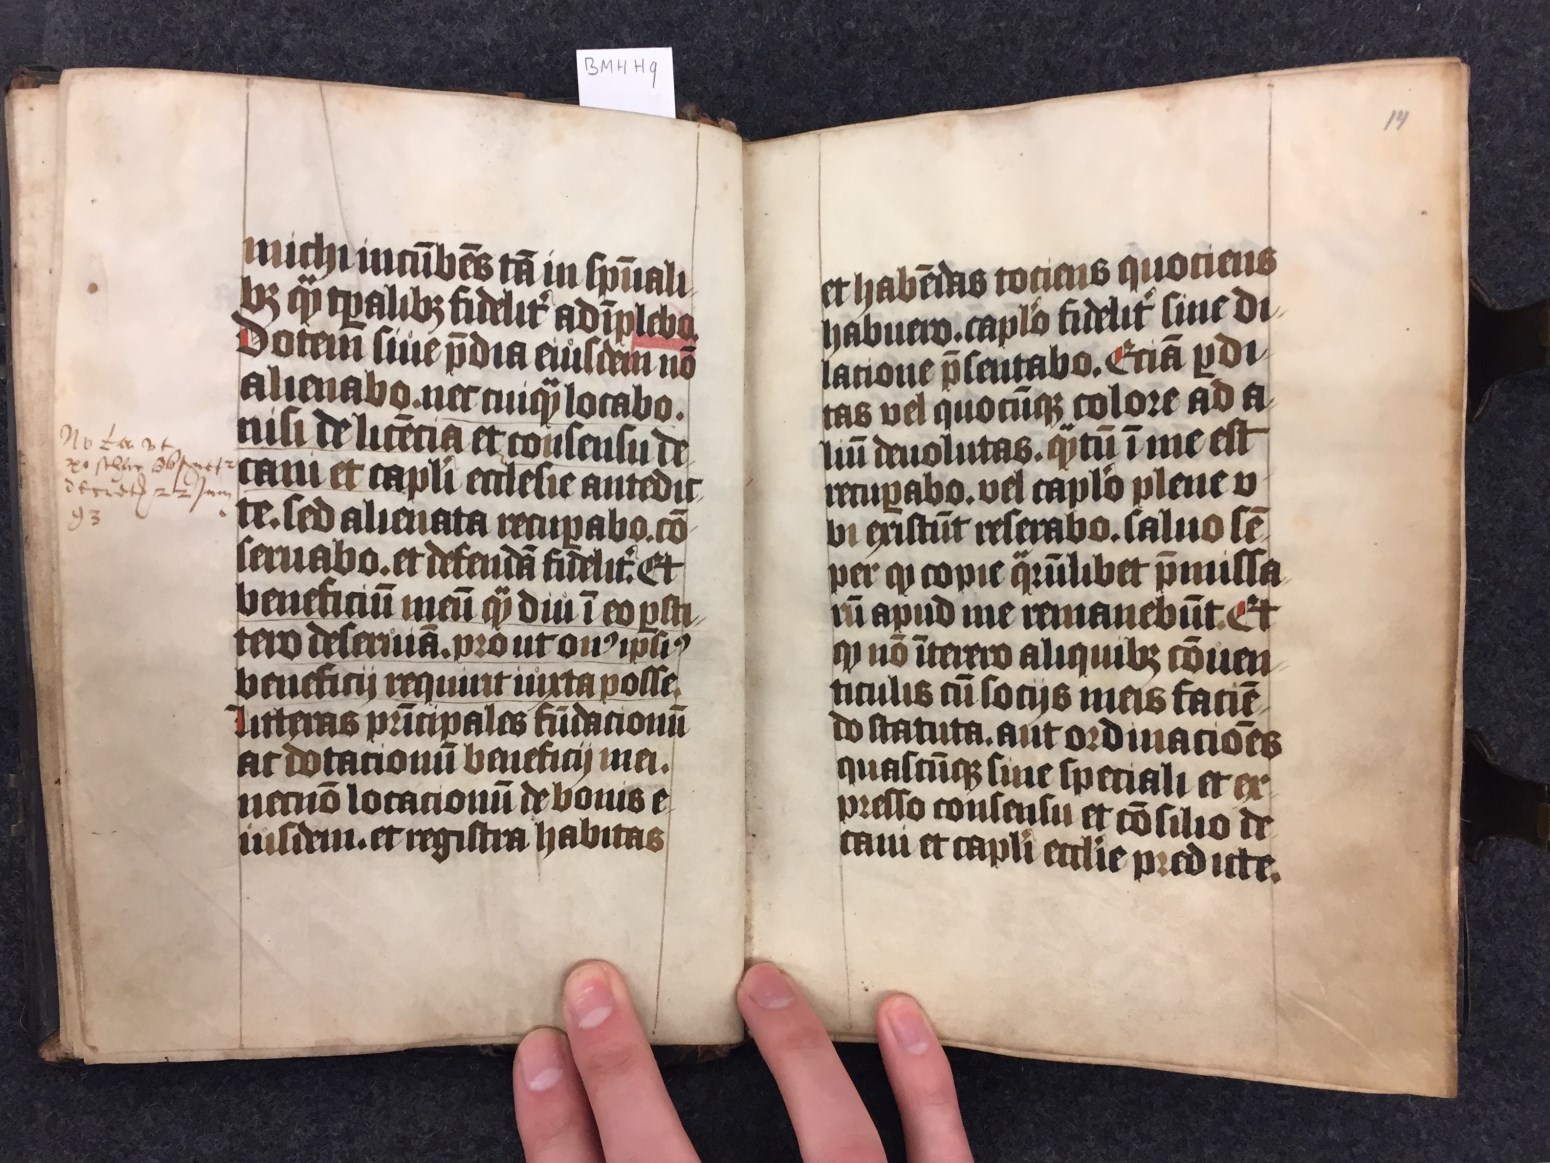 BMHH9
michi incūbēs tā in sp̄uali
bꝫ qͣ̄ tꝑalibꝫ fidelit᷑ adīplebo.
Dotem̄ siue p̄dia eiusdem nō
alienabo. nec cuiqͣ̄ locabo.
nisi de licēcia et consensu de
cani et capl̄i ecclesie antedic
te. sed alienata recuꝑabo. cō
seruabo. et defendā fidelit᷑. Et
beneficiū meū qͣ̄ diu ī eo ꝑsti
tero deseruiā. prout onꝰ ipsiꝰ
beneficij requirit iuxta posse.
Litteras prīcipales fūdacionū
ac dotacionū beneficij mei.
necnō locacionū de bonis e
iusdem. et registra habitas
Nota
22 Juny
93
14
et habēdas tociens quociens
habuero. caplō fidelit᷑ sine di
lacione p̄sentabo. Eciā ꝑdi
tas vel quocūqꝫ colore ad a
liū deuolutas. qͣ̄tū ī me est
recuꝑabo. vel caplō plene v
bi existūt reserabo. saluo sē
per qͥ copie qͣrūlibet p̄missa
rū apud me remanebūt. Et
qͥ nō īterero aliquibꝫ cōuen
ticulis cū socijs meis faciē
do statuta. aut ordinacioēs
quascūqꝫ sine speciali et ex
presso consensu et cōsilio de
cani et capl̄i ecclīe predicte.